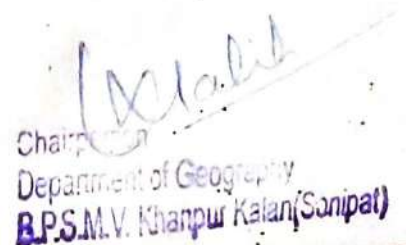 Chairperson
Department of Geography
B.P.S.M.V. Khanpur Kalan(Sonipat)